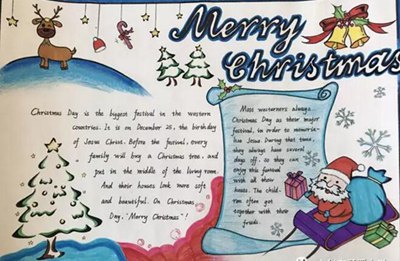 Merry
Christmas
Christmas Day is the biggest festival in the western
countries. It is on December 25, the birthday
of Jesus Christ. Before the festival, every
family will buy a Christmas tree, and
put in the middle of the living room.
And their houses look more soft
and beautiful. On Christmas
Day, "Merry Christmas"!
Most westerners always
Christmas Day as their major
festival, in order to memoria-
lise Jesus During that time,
they always have several
days off. so they can
enjoy this festival
with all whole
hours. The child-
ren often got
together with their
friends.